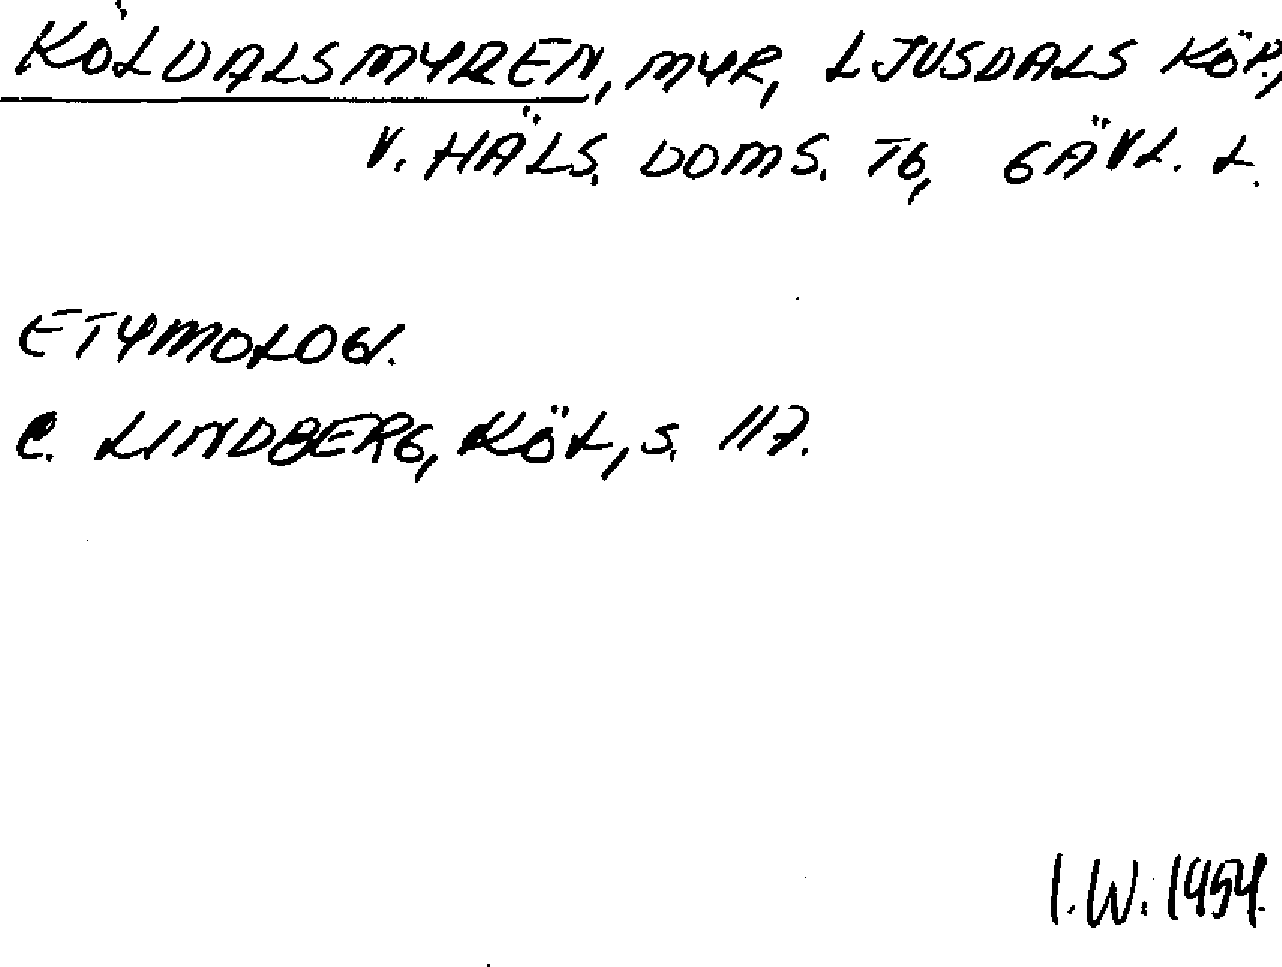 KÖLDALSMYREN, MYR, LJUSDALS KÖP.,
V. HÄLS. DOMS. TG, GÄVL. L.
ETYMOLOGI.
C. LINDBERG, KÖL, S. 117.
I.W. 1954.